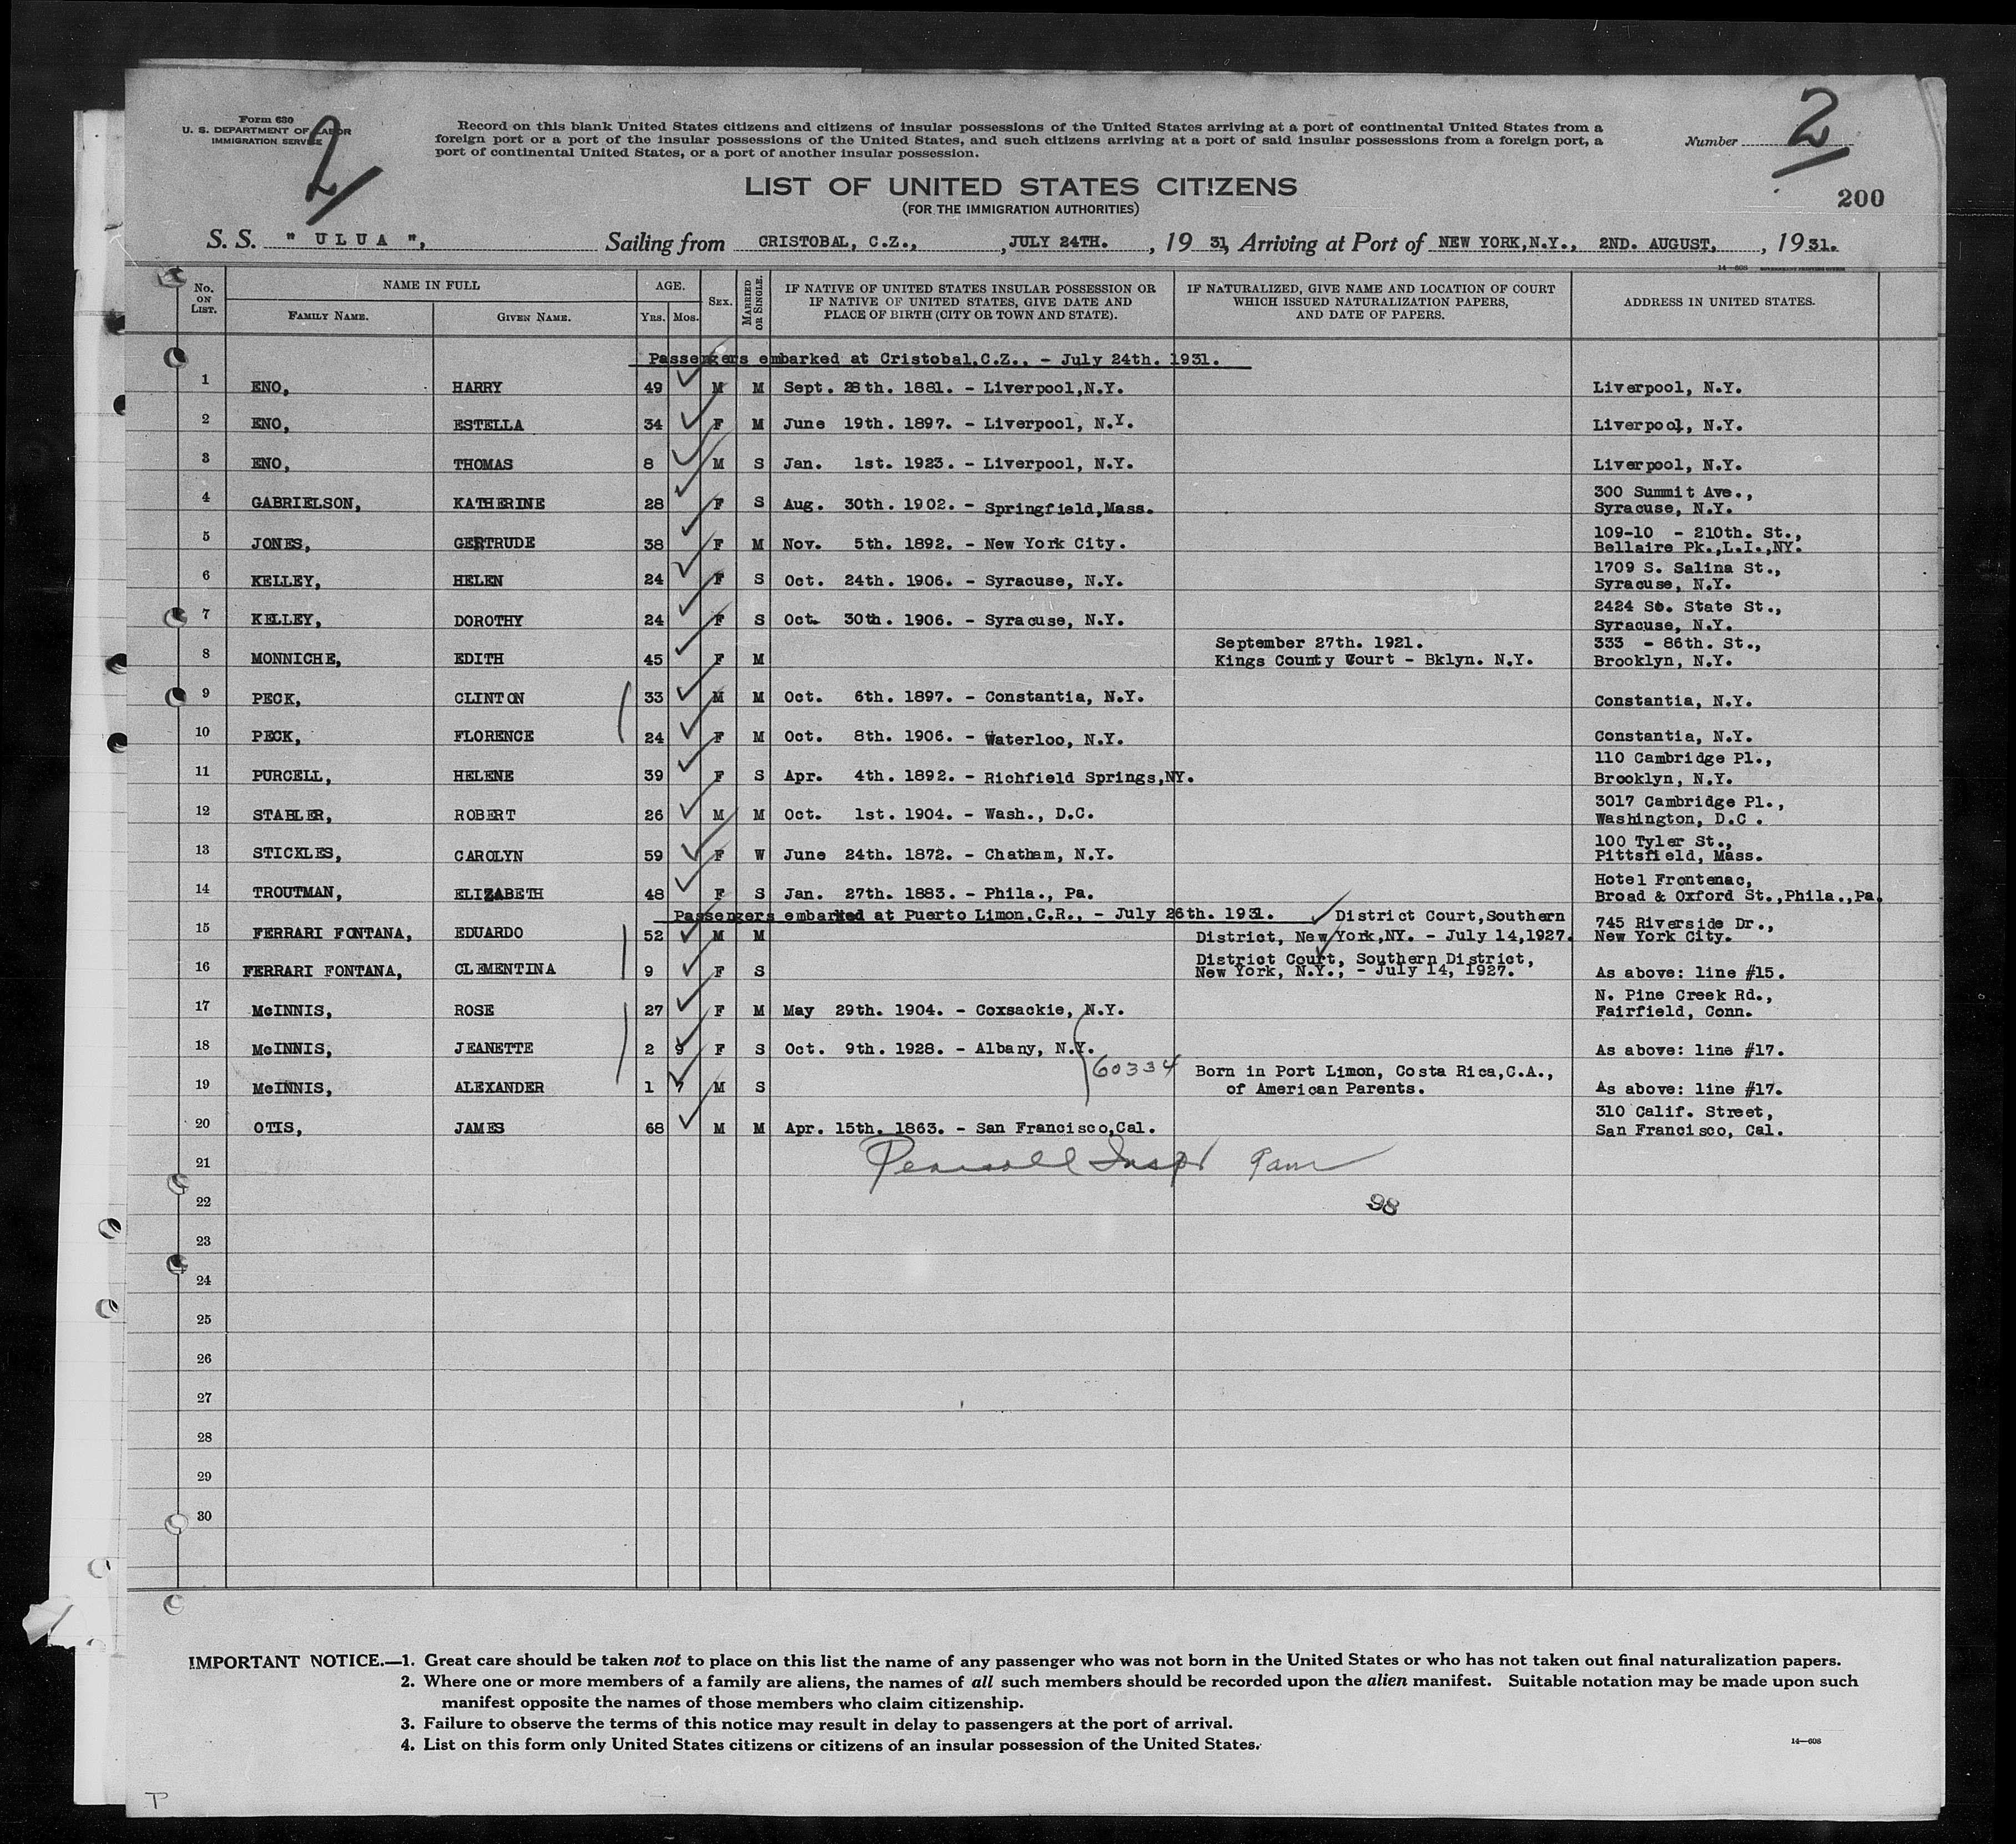 Form 630
U. S. DEPARTMENT OF LABOR
IMMIGRATION SERVICE
2
Record on this blank United States citizens and citizens of insular possessions of the United States arriving at a port of continental United States from a
foreign port or a port of the insular possessions of the United States, and such citizens arriving at a port of said insular possessions from a foreign port, a
port of continental United States, or a port of another insular possession.
Number 2
LIST OF UNITED STATES CITIZENS
(FOR THE IMMIGRATION AUTHORITIES)
200
S. S. " ULUA ", Sailing from CRISTOBAL, C.Z., , JULY 24TH. , 19 31, Arriving at Port of NEW YORK,N.Y., 2ND. AUGUST, , 19 31.
14—608 GOVERNMENT PRINTING OFFICE
No. ON LIST. NAME IN FULL FAMILY NAME. GIVEN NAME. AGE. YRS. MOS. SEX. MARRIED OR SINGLE. IF NATIVE OF UNITED STATES INSULAR POSSESSION OR IF NATIVE OF UNITED STATES, GIVE DATE AND PLACE OF BIRTH (CITY OR TOWN AND STATE). IF NATURALIZED, GIVE NAME AND LOCATION OF COURT WHICH ISSUED NATURALIZATION PAPERS, AND DATE OF PAPERS. ADDRESS IN UNITED STATES.
Passengers embarked at Cristobal,C.Z., - July 24th. 1931.
1 ENO, HARRY 49 M M Sept. 28th. 1881. - Liverpool,N.Y. Liverpool, N.Y.
2 ENO, ESTELLA 34 F M June 19th. 1897. - Liverpool, N.Y. Liverpool, N.Y.
3 ENO, THOMAS 8 M S Jan. 1st. 1923. - Liverpool, N.Y. Liverpool, N.Y.
4 GABRIELSON, KATHERINE 28 F S Aug. 30th. 1902. - Springfield,Mass. 300 Summit Ave., Syracuse, N.Y.
5 JONES, GERTRUDE 38 F M Nov. 5th. 1892. - New York City. 109-10 - 210th. St., Bellaire Pk.,L.I.,NY.
6 KELLEY, HELEN 24 F S Oct. 24th. 1906. - Syracuse, N.Y. 1709 S. Salina St., Syracuse, N.Y.
7 KELLEY, DOROTHY 24 F S Oct. 30th. 1906. - Syracuse, N.Y. 2424 So. State St., Syracuse, N.Y.
8 MONNICHE, EDITH 45 F M September 27th. 1921. Kings County Court - Bklyn. N.Y. 333 - 86th. St., Brooklyn, N.Y.
9 PECK, CLINTON 33 M M Oct. 6th. 1897. - Constantia, N.Y. Constantia, N.Y.
10 PECK, FLORENCE 24 F M Oct. 8th. 1906. - Waterloo, N.Y. Constantia, N.Y.
11 PURCELL, HELENE 39 F S Apr. 4th. 1892. - Richfield Springs,NY. 110 Cambridge Pl., Brooklyn, N.Y.
12 STABLER, ROBERT 26 M M Oct. 1st. 1904. - Wash., D.C. 3017 Cambridge Pl., Washington, D.C.
13 STICKLES, CAROLYN 59 F W June 24th. 1872. - Chatham, N.Y. 100 Tyler St., Pittsfield, Mass.
14 TROUTMAN, ELIZABETH 48 F S Jan. 27th. 1883. - Phila., Pa. Hotel Frontenac, Broad & Oxford St.,Phila.,Pa.
Passengers embarked at Puerto Limon,C.R., - July 26th. 1931.
15 FERRARI FONTANA, EDUARDO 52 M M District Court,Southern District, New York,NY. - July 14,1927. 745 Riverside Dr., New York City.
16 FERRARI FONTANA, CLEMENTINA 9 F S District Court, Southern District, New York, N.Y., - July 14, 1927. As above: line #15.
17 McINNIS, ROSE 27 F M May 29th. 1904. - Coxsackie, N.Y. N. Pine Creek Rd., Fairfield, Conn.
18 McINNIS, JEANETTE 2 9 F S Oct. 9th. 1928. - Albany, N.Y. As above: line #17.
60334
19 McINNIS, ALEXANDER 1 7 M S Born in Port Limon, Costa Rica,C.A., of American Parents. As above: line #17.
20 OTIS, JAMES 68 M M Apr. 15th. 1863. - San Francisco,Cal. 310 Calif. Street, San Francisco, Cal.
21
22 98
23
24
25
26
27
28
29
30
IMPORTANT NOTICE.—1. Great care should be taken not to place on this list the name of any passenger who was not born in the United States or who has not taken out final naturalization papers.
2. Where one or more members of a family are aliens, the names of all such members should be recorded upon the alien manifest. Suitable notation may be made upon such
manifest opposite the names of those members who claim citizenship.
3. Failure to observe the terms of this notice may result in delay to passengers at the port of arrival.
4. List on this form only United States citizens or citizens of an insular possession of the United States.
14—608
T